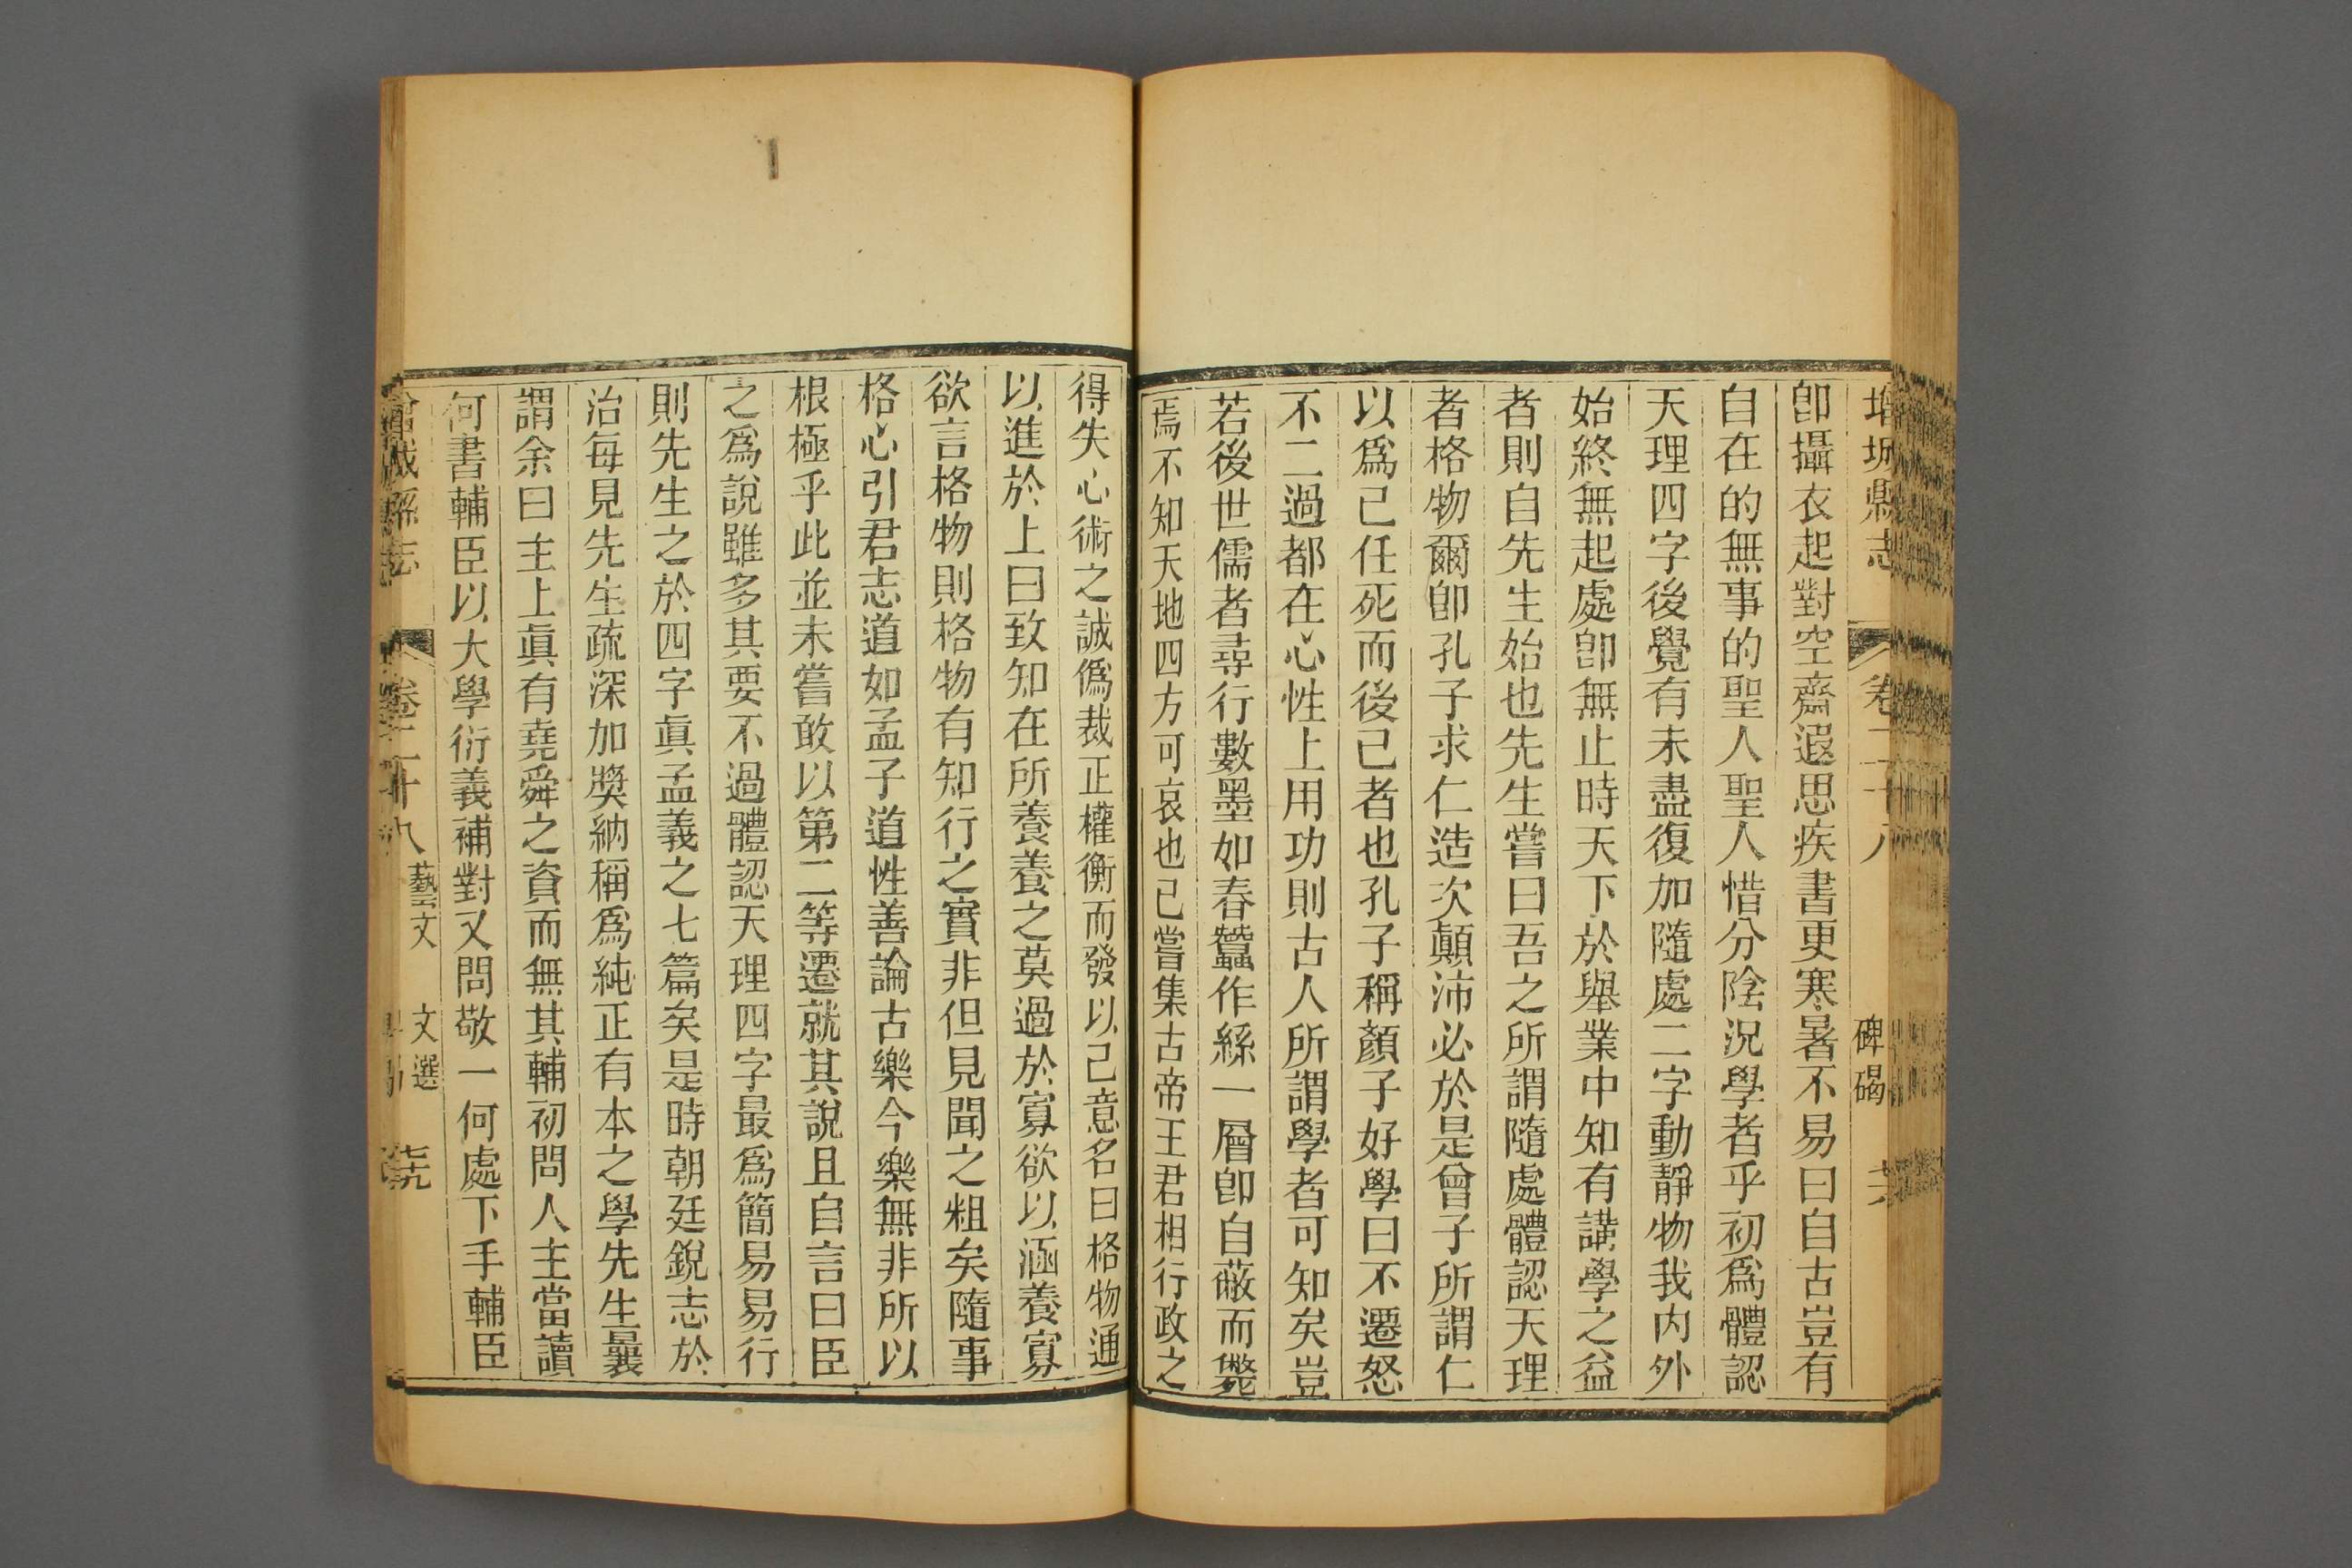 增城縣志 卷二十八 碑碣
卽攝衣起對空齋遐思疾書更寒暑不易曰自古豈有
自在的無事的聖人聖人惜分陰況學者乎初爲體認
天理四字後覺有未盡復加隨處二字動靜物我內外
始終無起處卽無止時天下於舉業中知有講學之益
者則自先生始也先生嘗曰吾之所謂隨處體認天理
者格物爾卽孔子求仁造次顛沛必於是曾子所謂仁
以爲己任死而後已者也孔子稱顏子好學曰不遷怒
不二過都在心性上用功則古人所謂學者可知矣豈
若後世儒者尋行數墨如春蠶作絲一層卽自蔽而斃
焉不知天地四方可哀也已嘗集古帝王君相行政之
得失心術之誠僞裁正權衡而發以己意名曰格物通
以進於上曰致知在所養養之莫過於寡欲以涵養寡
欲言格物則格物有知行之實非但見聞之粗矣隨事
格心引君志道如孟子道性善論古樂今樂無非所以
根極乎此並未嘗敢以第二等遷就其說且自言曰臣
之爲說雖多其要不過體認天理四字最爲簡易易行
則先生之於四字眞孟義之七篇矣是時朝廷銳志於
治每見先生疏深加奬納稱爲純正有本之學先生曩
謂余曰主上眞有堯舜之資而無其輔初問人主當讀
何書輔臣以大學衍義補對又問敬一何處下手輔臣
增城縣志 卷二十八 藝文 文選